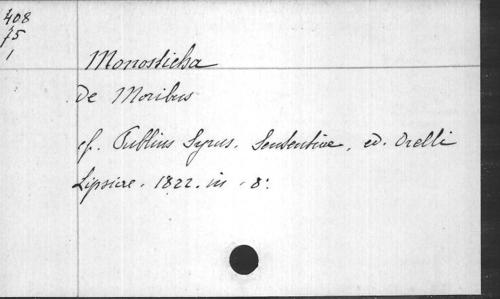 408
75
1
Monosticha
De Moribus
cf. Publius Syrus. Sententiae, ed. Orelli
Lipsiae. 1822. in - 8°.